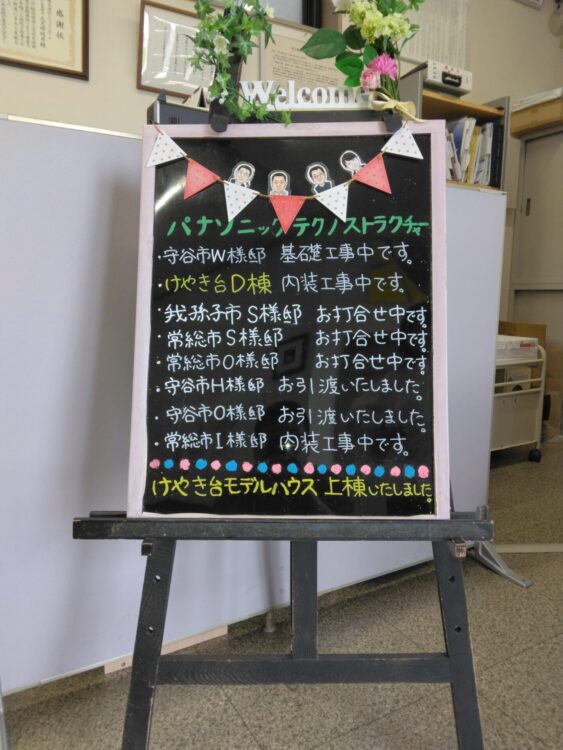 感謝状
Welcome
パナソニックテクノストラクチャー
・守谷市W様邸 基礎工事中です。
・けやき台D棟 内装工事中です。
・我孫子市S様邸 お打合せ中です。
・常総市S様邸 お打合せ中です。
・常総市O様邸 お打合せ中です。
・守谷市H様邸 お引渡いたしました。
・守谷市O様邸 お引渡いたしました。
・常総市I様邸 内装工事中です。
けやき台モデルハウス 上棟いたしました。